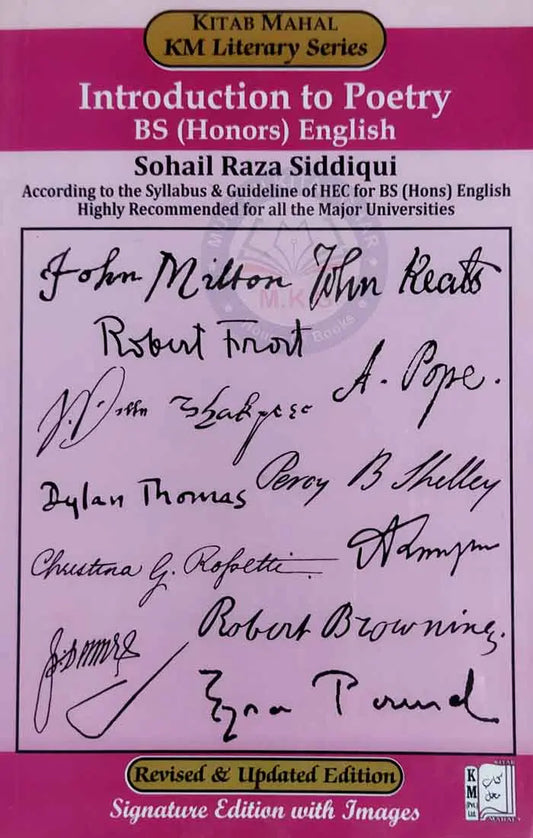 KITAB MAHAL
KM Literary Series
Introduction to Poetry
BS (Honors) English
Sohail Raza Siddiqui
According to the Syllabus & Guideline of HEC for BS (Hons) English
Highly Recommended for all the Major Universities
M.K.
Books
John Milton John Keats
Robert Frost
A. Pope.
Dylan Thomas Percy B Shelley
Christina G. Rossetti
Robert Browning.
Ezra Pound
Revised & Updated Edition
Signature Edition with Images
KM
(Pvt.)
Ltd.
KITAB
MAHAL